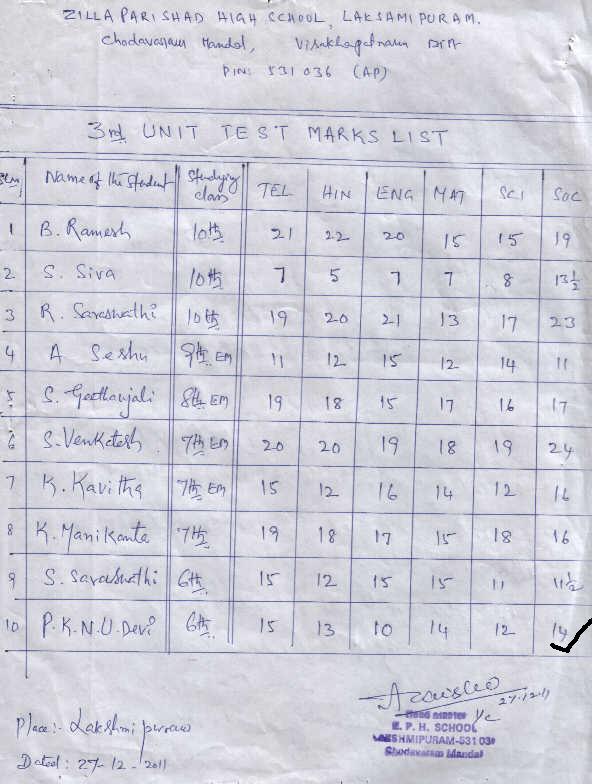 ZILLA PARISHAD HIGH SCHOOL, LAKSAMIPURAM.
Chodavaram Mandal, Visakhapatnam Dist
PIN: 531036 (AP)
3rd UNIT TEST MARKS LIST
Name of the Student Studying class TEL HIN ENG MAT SCI SOC
1 B. Ramesh 10th 21 22 20 15 15 19
2 S. Siva 10th 7 5 7 7 8 13½
3 R. Saraswathi 10th 19 20 21 13 17 23
4 A Seshu 9th EM 11 12 15 12 14 11
5 S. Geethanjali 8th EM 19 18 15 17 16 17
6 S. Venkatesh 7th EM 20 20 19 18 19 24
7 K. Kavitha 7th EM 15 12 16 14 12 16
8 K. Manikanta 7th 19 18 17 15 18 16
9 S. Saraswathi 6th 15 12 15 15 11 11½
10 P.K.N.U. Devi 6th 15 13 10 14 12 14
27-12-11
Head master I/c
Z. P. H. SCHOOL
LAKSHMIPURAM-531 036
Chodavaram Mandal
Place:- Lakshmi puram
Dated: 27-12-2011